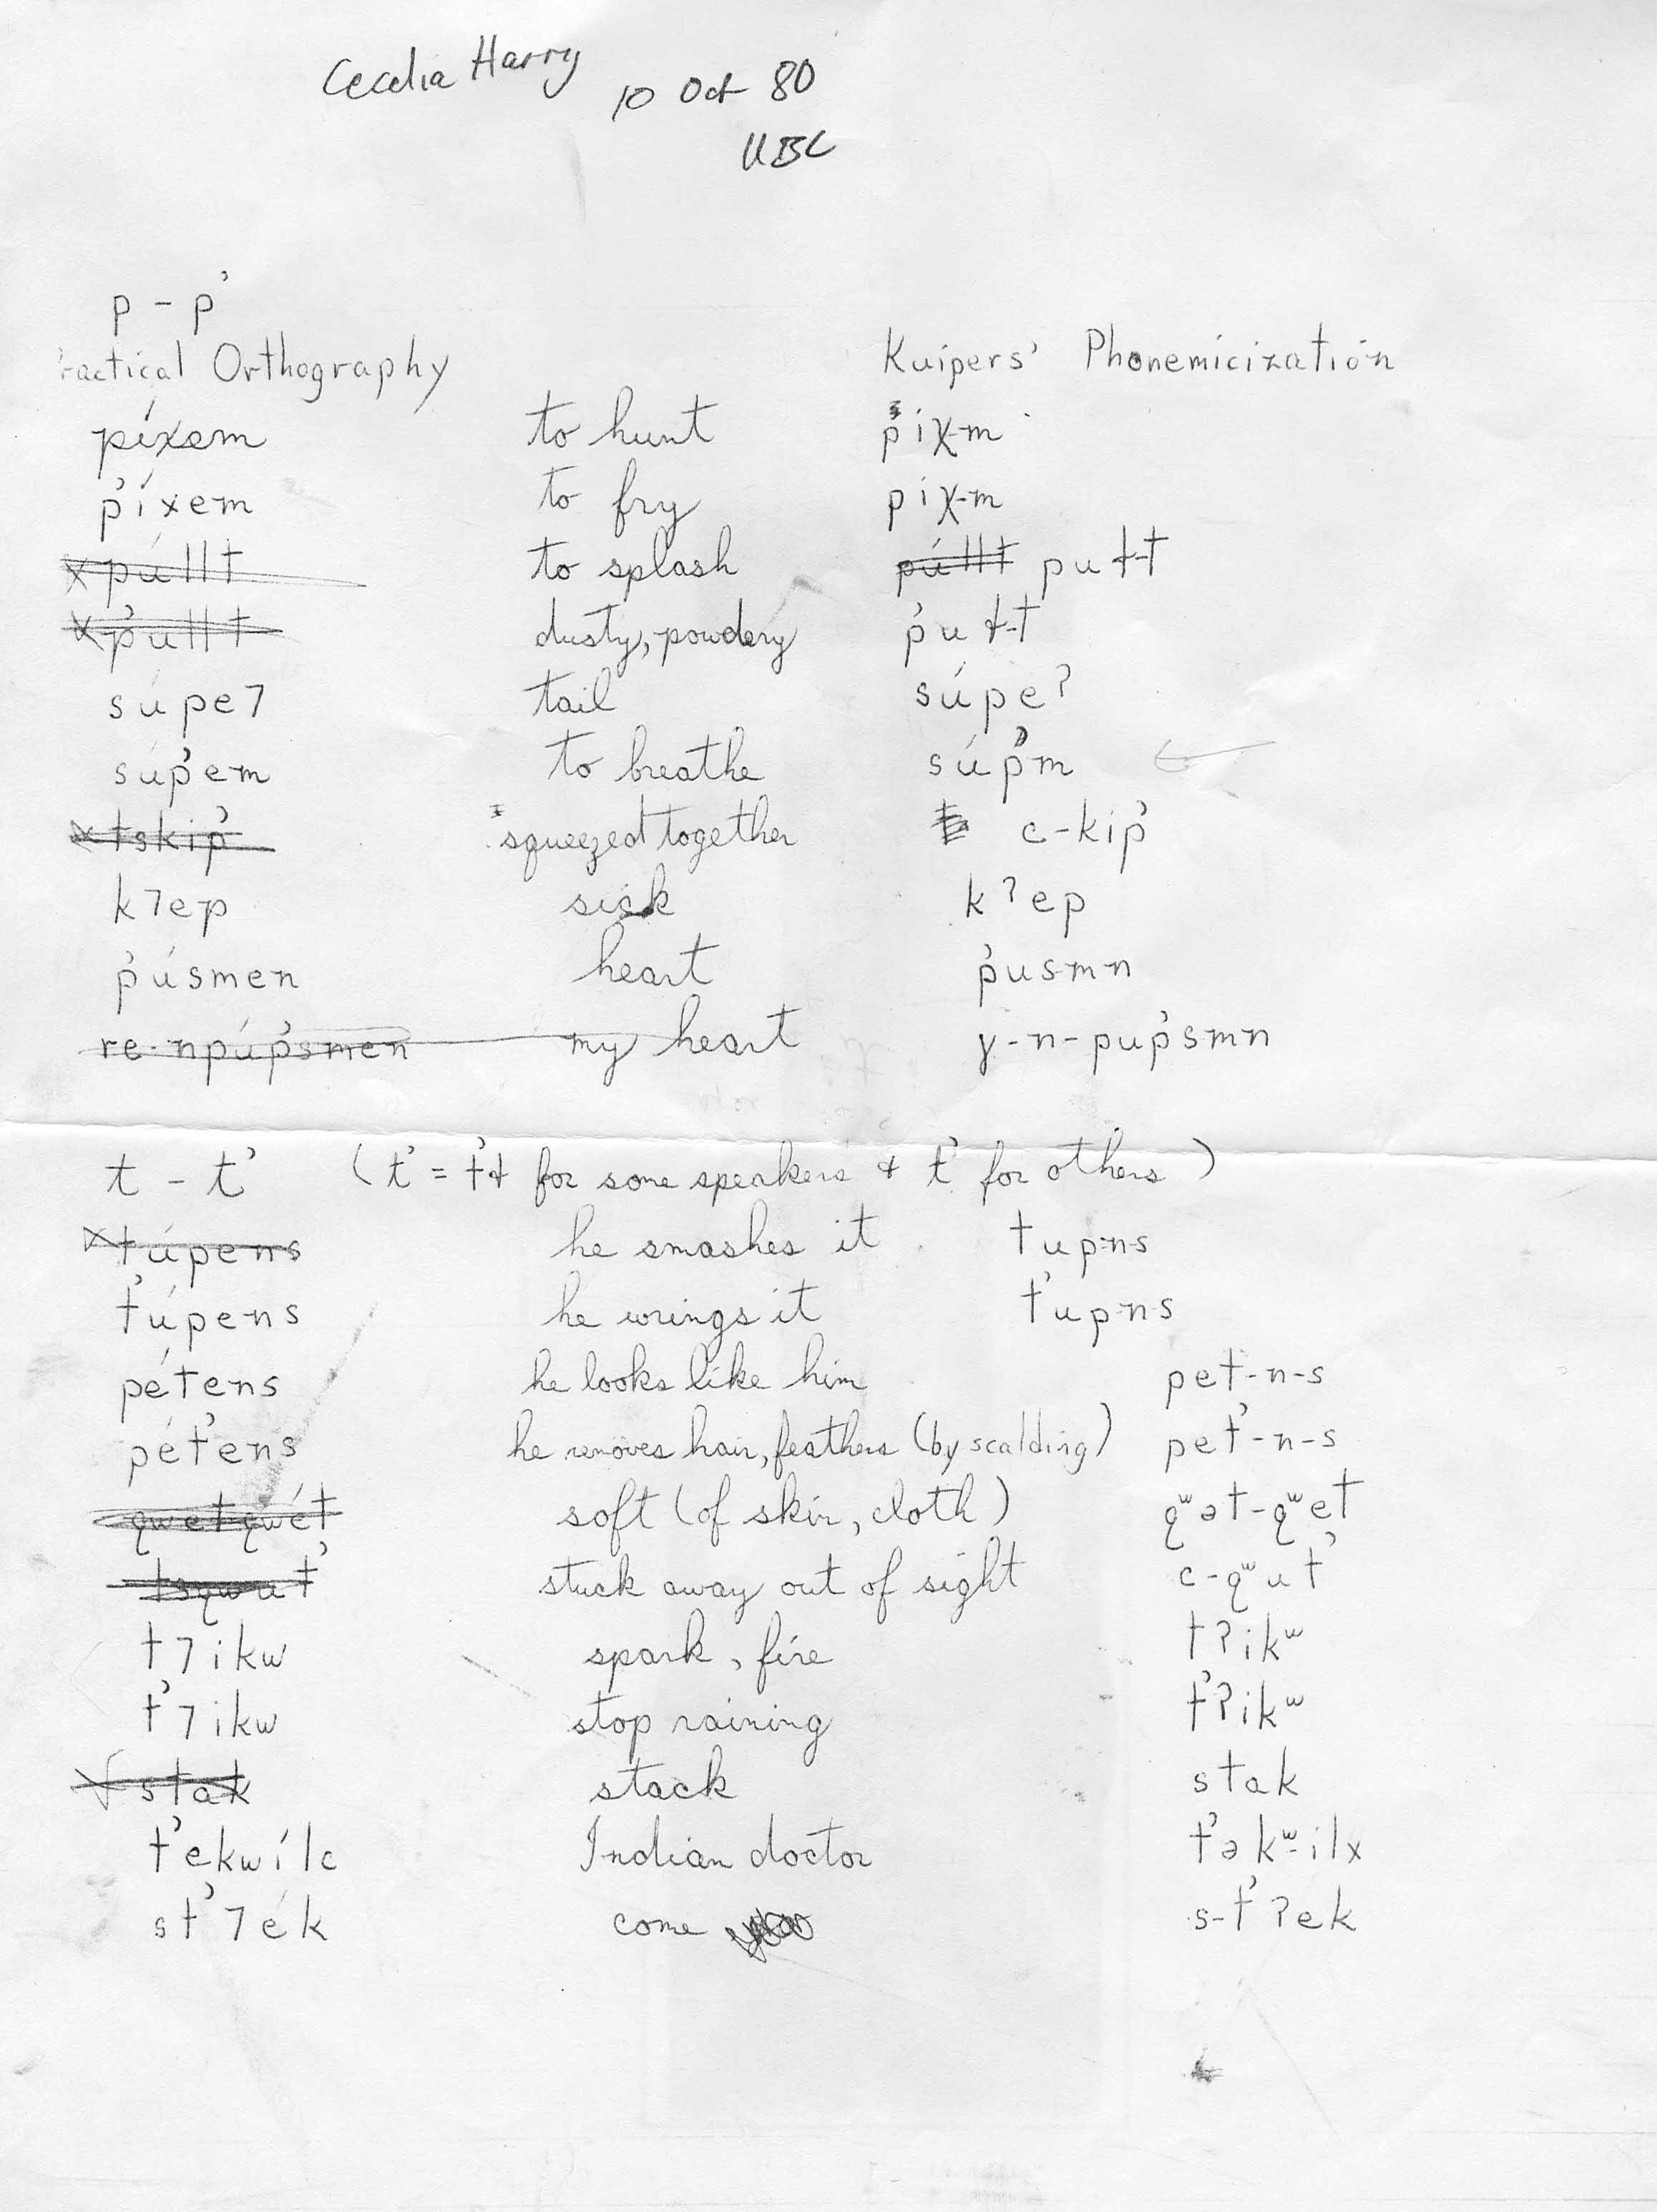 Cecelia Harry 10 Oct 80
UBC
p - p̓
ractical Orthography Kuipers' Phonemicization
píxem to hunt p i χ-m
p̓íxem to fry p i χ-m
x púllt to splash púllt pu ɬ-t
x p̓ullt dusty, powdery p̓u ɬ-t
súpe7 tail súpeʔ
súp̓em to breathe súp̓m ←
x tskip̓ squeezed together c-kip̓
k7ep sick kʔep
p̓úsmen heart p̓usmn
re npúp̓smen my heart ɣ-n-pup̓smn
t - t̓ (t̓ = t̓ɬ for some speakers & t̓ for others)
x túpens he smashes it tup-n-s
t̓úpens he wrings it t̓up-n-s
pétens he looks like him pet-n-s
pét̓ens he removes hair, feathers (by scalding) pet̓-n-s
qwetqwét soft (of skin, cloth) qʷət-qʷet
tsqwut̓ stuck away out of sight c-qʷut̓
t7ikw spark, fire tʔikʷ
t̓7ikw stop raining t̓ʔikʷ
x stak stack stak
t̓ekwílc Indian doctor t̓əkʷ-ilx
st̓7ék come s-t̓ʔek